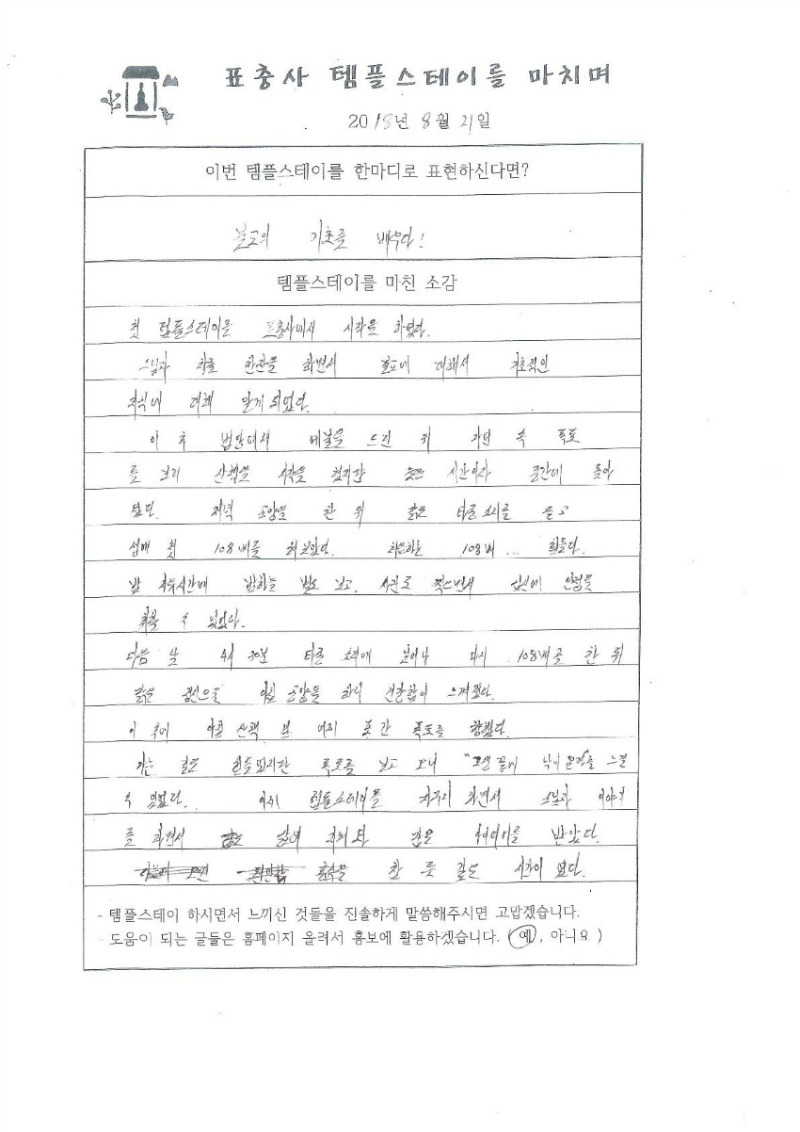 표충사 템플스테이를 마치며
2018년 8월 21일
이번 템플스테이를 한마디로 표현하신다면?
불교의 기초를 배우다!
템플스테이를 마친 소감
첫 템플스테이을 표충사에서 시작을 하였다.
스님과 차를 한잔을 하면서 불교에 대해서 기초적인
지식에 대해 알게 되었다.
이 후 법당에서 예불을 드린 뒤 가면 속 폭포
를 보러 산책을 시작을 했지만 늦은 시간이라 중간에 돌아
왔다. 저녁 공양을 한 뒤 맑은 타종소리를 듣고
생애 첫 108배를 해보았다. 108배... 힘들다.
밤 자유시간에 밤하늘 별도 보고, 사진도 찍으면서 심신에 안정을
취할 수 있었다.
다음 날 4시 30분 타종 소리에 일어나 다시 108배를 한 뒤
맑은 정신으로 아침 공양을 하니 건강함이 느껴졌다.
이 후에 아침 산책 때 여러 폭포를 향했다.
가는 길은 힘들었지만 폭포를 보고 오니 "고생 끝에 낙이 온다를 느낄
수 있었다. 템플스테이를 하면서 스님과 이야기
를 하면서 많은 반았다.
휴식을 한 듯 같은 시간이 였다.
- 템플스테이 하시면서 느끼신 것들을 진솔하게 말씀해주시면 고맙겠습니다.
- 도움이 되는 글들은 홈페이지 올려서 홍보에 활용하겠습니다. ( 예 , 아니요 )